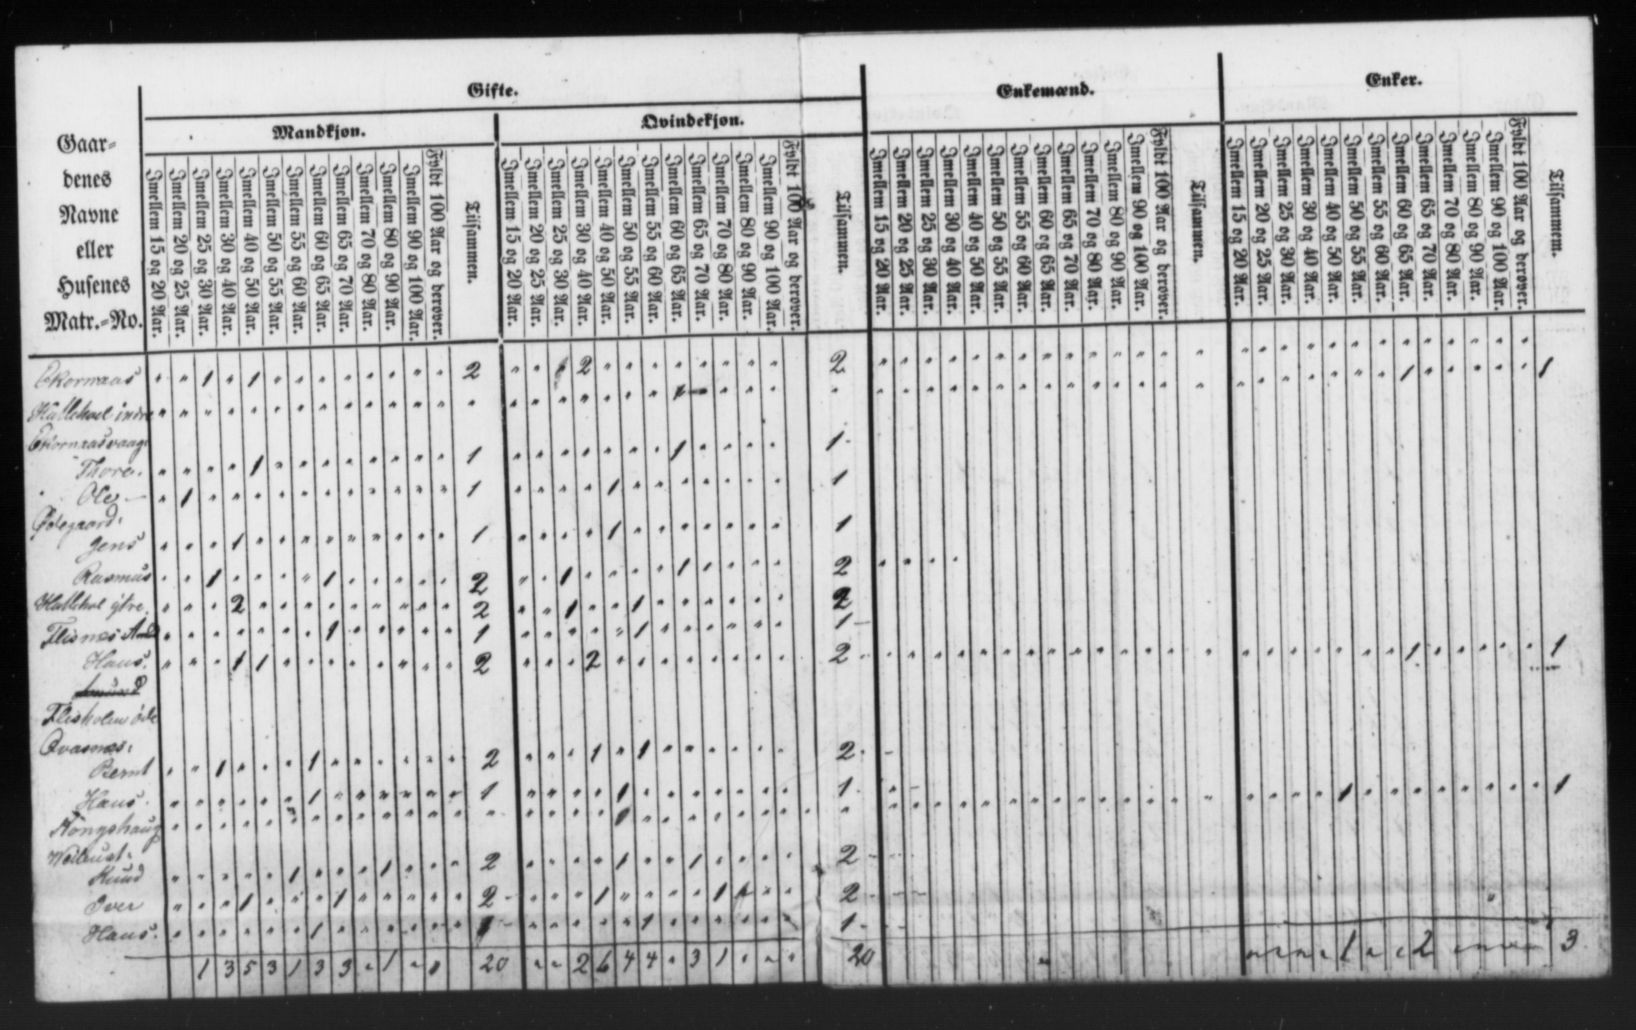 Gifte.
Enkemænd.
Enker.
Mandkjøn.
Qvindekjøn.
Gaar-
denes
Navne
eller
Husenes
Matr.-No.
Imellem 15 og 20 Aar.
Imellem 20 og 25 Aar.
Imellem 25 og 30 Aar.
Imellem 30 og 40 Aar.
Imellem 40 og 50 Aar.
Imellem 50 og 55 Aar.
Imellem 55 og 60 Aar.
Imellem 60 og 65 Aar.
Imellem 65 og 70 Aar.
Imellem 70 og 80 Aar.
Imellem 80 og 90 Aar.
Imellem 90 og 100 Aar.
Fyldt 100 Aar og derover.
Tilsammen.
Imellem 15 og 20 Aar.
Imellem 20 og 25 Aar.
Imellem 25 og 30 Aar.
Imellem 30 og 40 Aar.
Imellem 40 og 50 Aar.
Imellem 50 og 55 Aar.
Imellem 55 og 60 Aar.
Imellem 60 og 65 Aar.
Imellem 65 og 70 Aar.
Imellem 70 og 80 Aar.
Imellem 80 og 90 Aar.
Imellem 90 og 100 Aar.
Fyldt 100 Aar og derover.
Tilsammen.
Imellem 15 og 20 Aar.
Imellem 20 og 25 Aar.
Imellem 25 og 30 Aar.
Imellem 30 og 40 Aar.
Imellem 40 og 50 Aar.
Imellem 50 og 55 Aar.
Imellem 55 og 60 Aar.
Imellem 60 og 65 Aar.
Imellem 65 og 70 Aar.
Imellem 70 og 80 Aar.
Imellem 80 og 90 Aar.
Imellem 90 og 100 Aar.
Fyldt 100 Aar og derover.
Tilsammen.
Imellem 15 og 20 Aar.
Imellem 20 og 25 Aar.
Imellem 25 og 30 Aar.
Imellem 30 og 40 Aar.
Imellem 40 og 50 Aar.
Imellem 50 og 55 Aar.
Imellem 55 og 60 Aar.
Imellem 60 og 65 Aar.
Imellem 65 og 70 Aar.
Imellem 70 og 80 Aar.
Imellem 80 og 90 Aar.
Imellem 90 og 100 Aar.
Fyldt 100 Aar og derover.
Tilsammen.
Ekornaas 1 1 2 1 2 2
indre 1 1
Thore 1 1 1 1
Ole 1 1 1 1
Ødegaard
Jens 1 1 1 1
Rasmus 1 1 2 1 1 2
ytre 2 2 1 1 2
Flisnes 1 1 1 1
Hans. 1 1 2 2 2 1 1
Fleisholm öde
Qvasnes:
Bernt 1 1 2 1 1 2
Hans 1 1 1 1 1 1
Kongshaug
Knud 1 1 2 1 1 2
Iver 1 1 2 1 1 2
Hans. 1 1 1 1
1 3 5 3 1 3 3 1 20 2 6 4 4 3 1 20 1 2 3